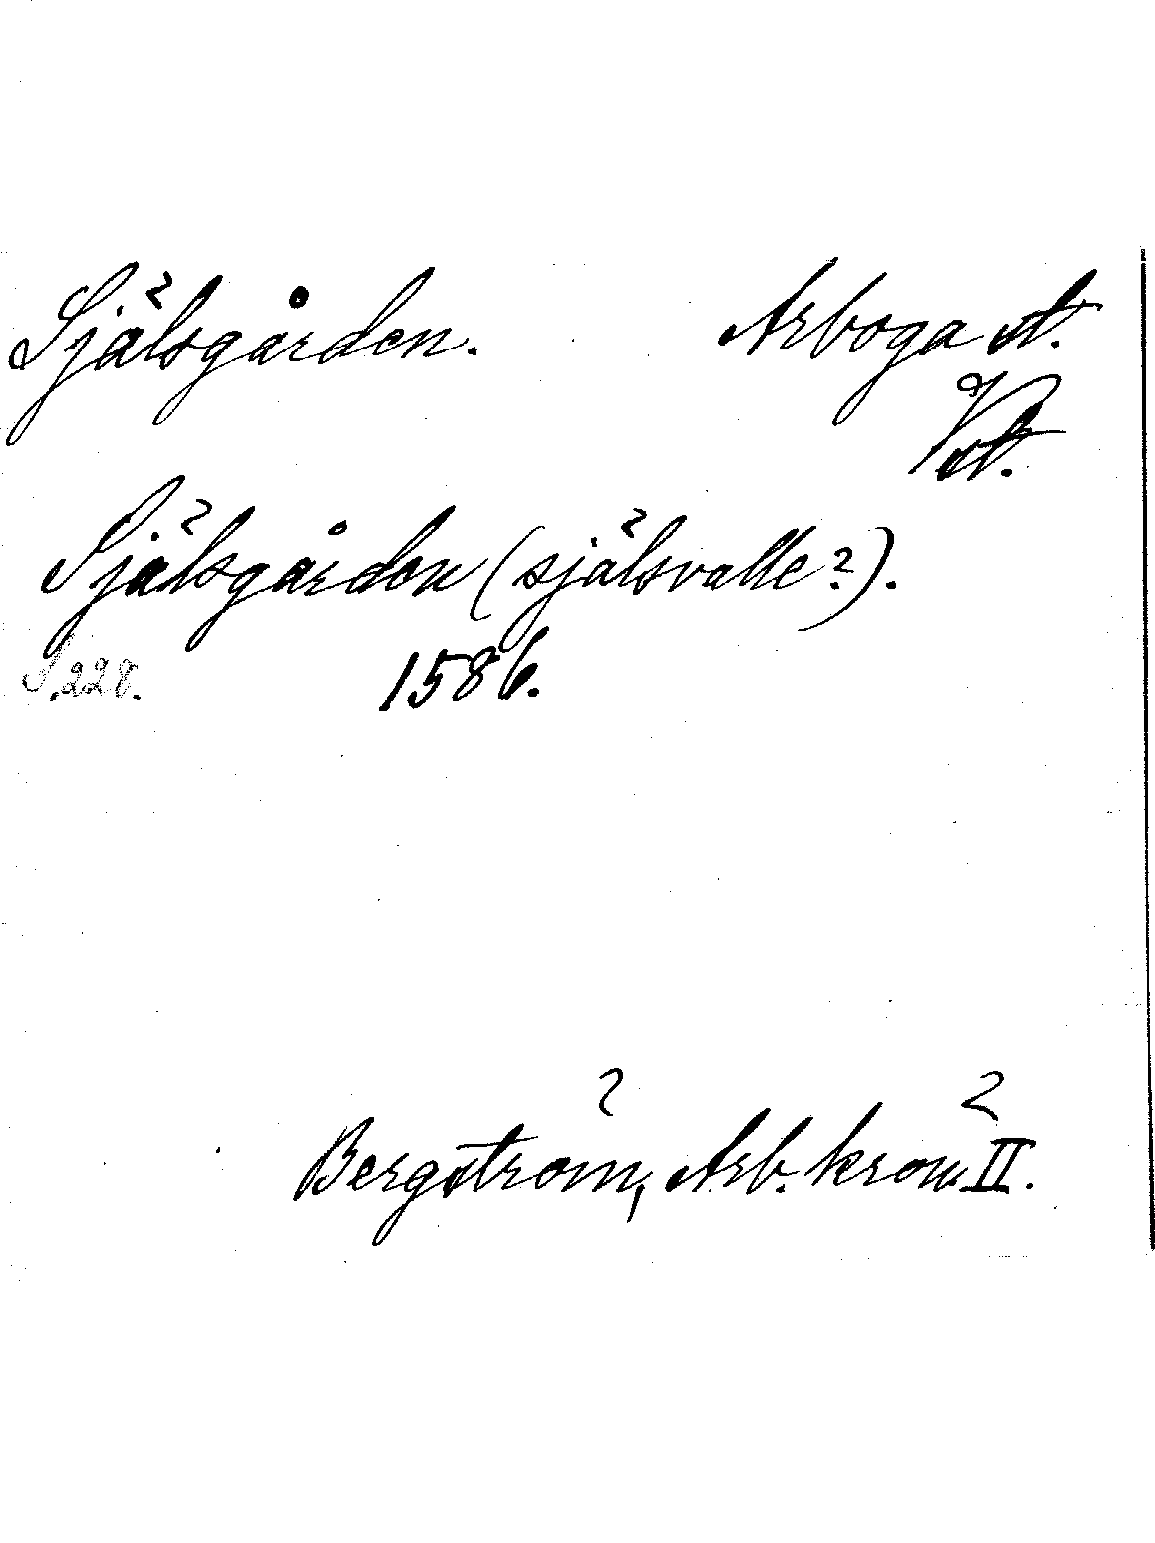 Själsgården. Arboga st.
Vst.
Själsgården (själsvalle?).
S.228. 1586.
Bergström, Arb. krön. II.